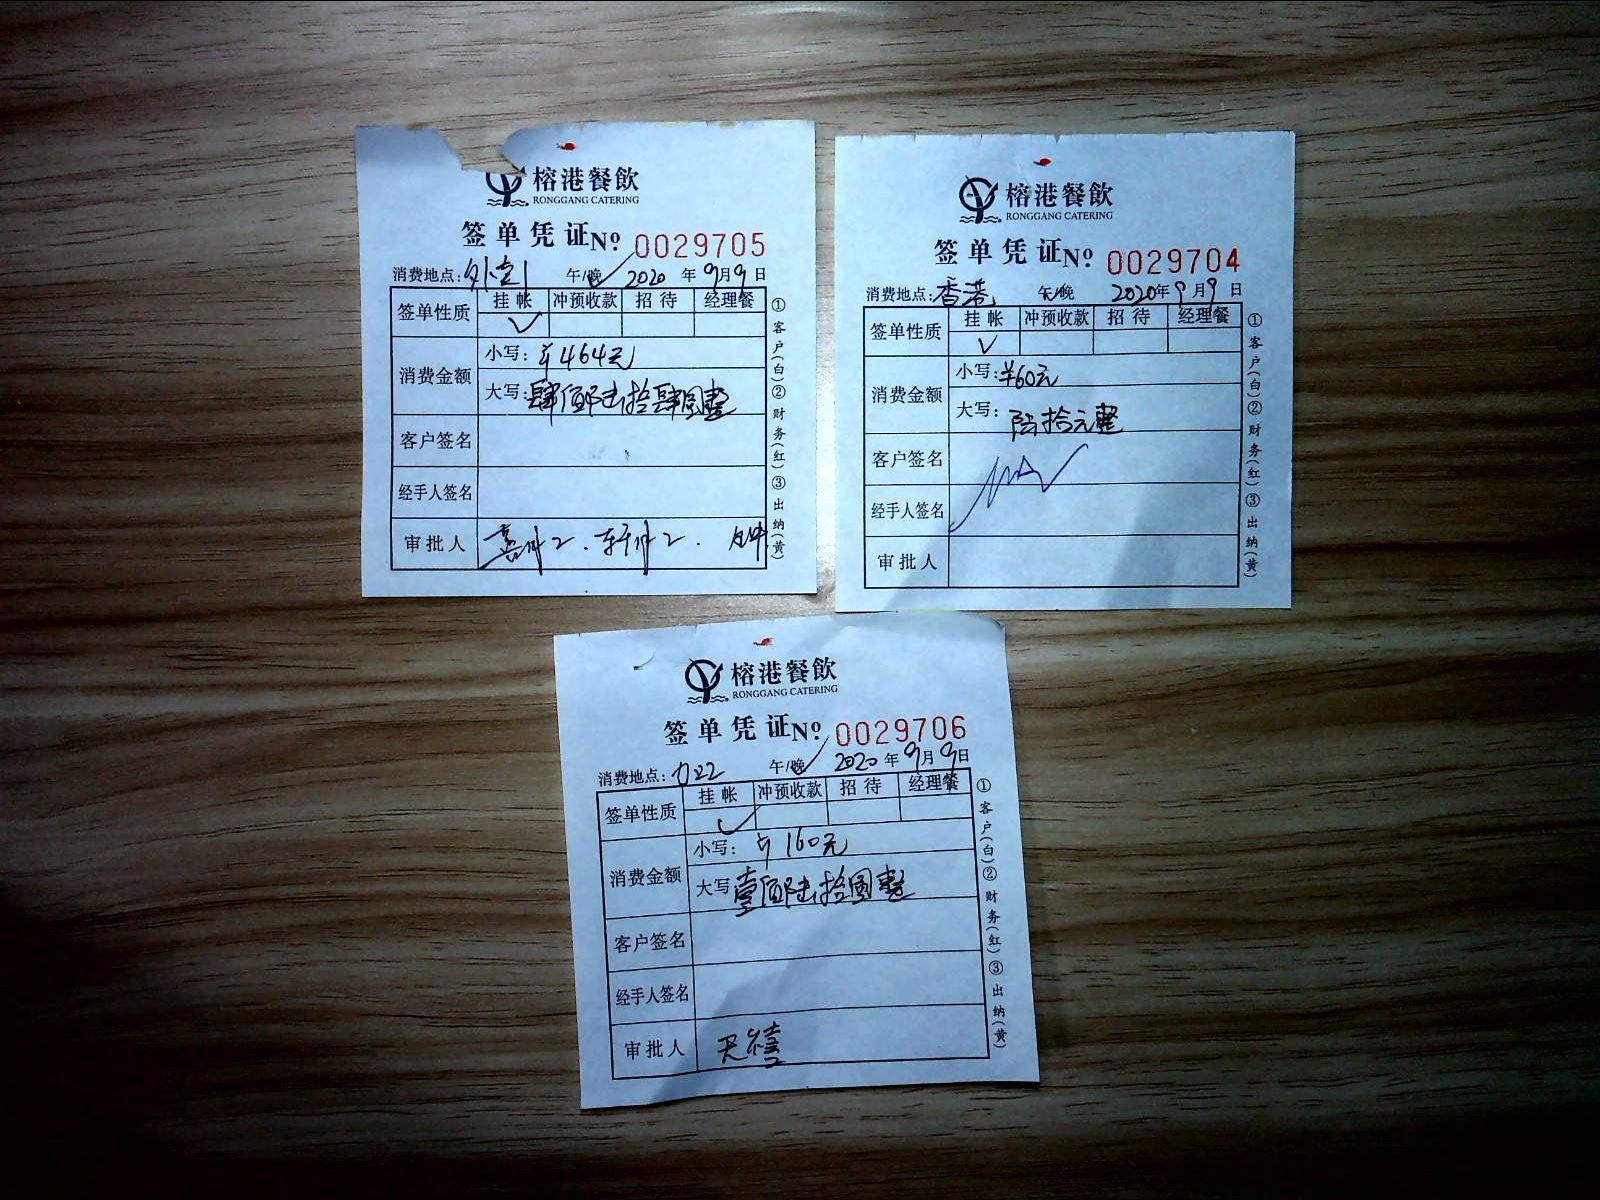 榕港餐飲
RONGGANG CATERING
签单凭证 Nº 0029705
消费地点: 午/晚 2020年9月9日
签单性质 挂帐 冲预收款 招待 经理餐
消费金额 小写: ¥464元
大写: 肆佰陆拾肆圆整
客户签名
经手人签名
审批人
①客户(白)②财务(红)③出纳(黄)
榕港餐飲
RONGGANG CATERING
签单凭证 Nº 0029704
消费地点: 香港 午/晚 2020年9月9日
签单性质 挂帐 冲预收款 招待 经理餐
消费金额 小写: ¥60元
大写: 陆拾元整
客户签名
经手人签名
审批人
①客户(白)②财务(红)③出纳(黄)
榕港餐飲
RONGGANG CATERING
签单凭证 Nº 0029706
消费地点: 午/晚 2020年9月9日
签单性质 挂帐 冲预收款 招待 经理餐
消费金额 小写: ¥160元
大写 壹佰陆拾圆整
客户签名
经手人签名
审批人 天禧
①客户(白)②财务(红)③出纳(黄)